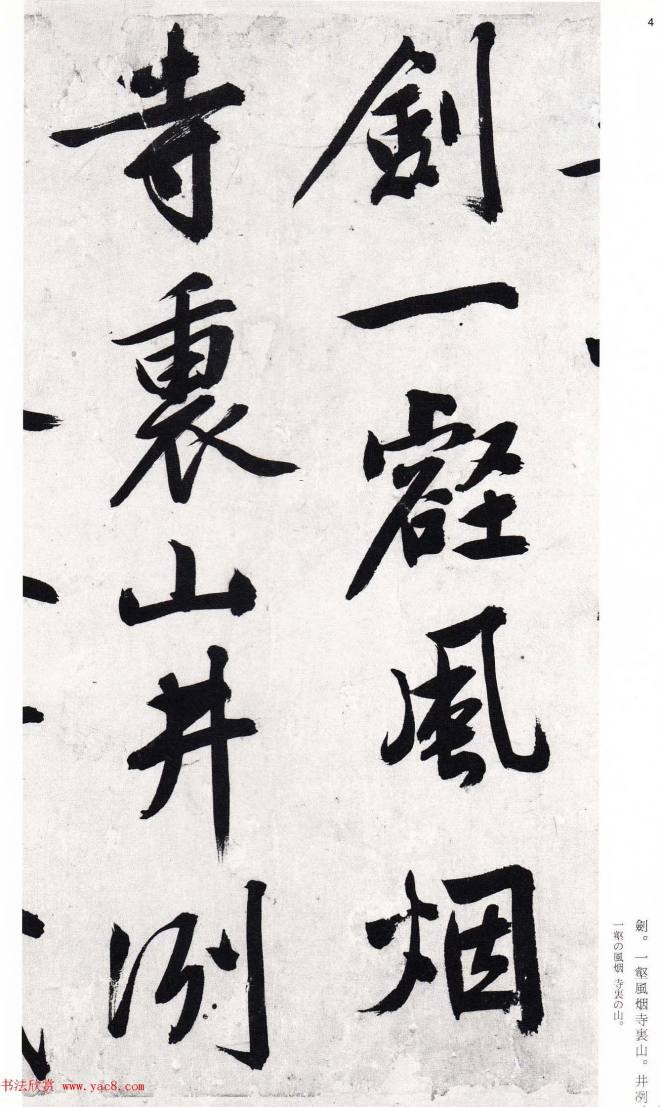 4
劍一壑風烟
寺裏山井冽
劍。一壑風烟寺裏山。井冽
一壑の風烟 寺裏の山。
书法欣赏 www.yac8.com